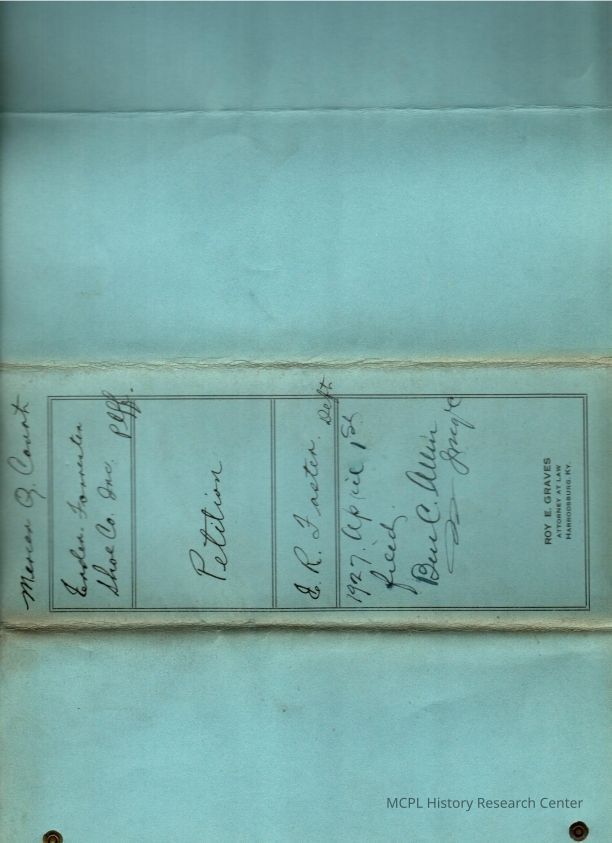 Mercer Q. Court
Forrester
Shoe Co. Inc. Plff.
Petition
E. R. Foster. Deft
1927. April 1st
filed.
Ben C. Allin
Judge
ROY E. GRAVES
ATTORNEY AT LAW
HARRODSBURG, KY.
MCPL History Research Center